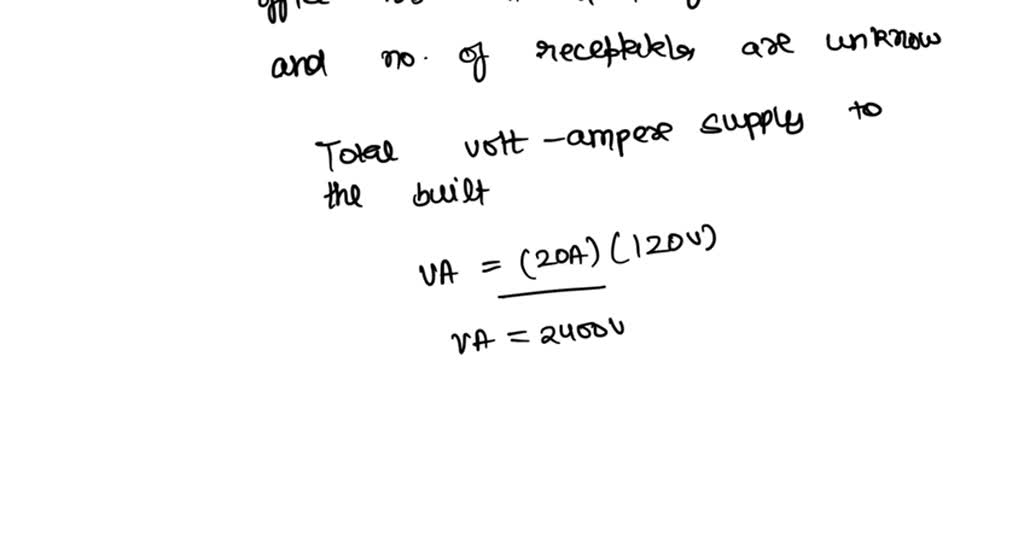 and no. of are unknow
Total volt-ampere supply to
the built
VA = (20A) (120V)
VA = 2400V